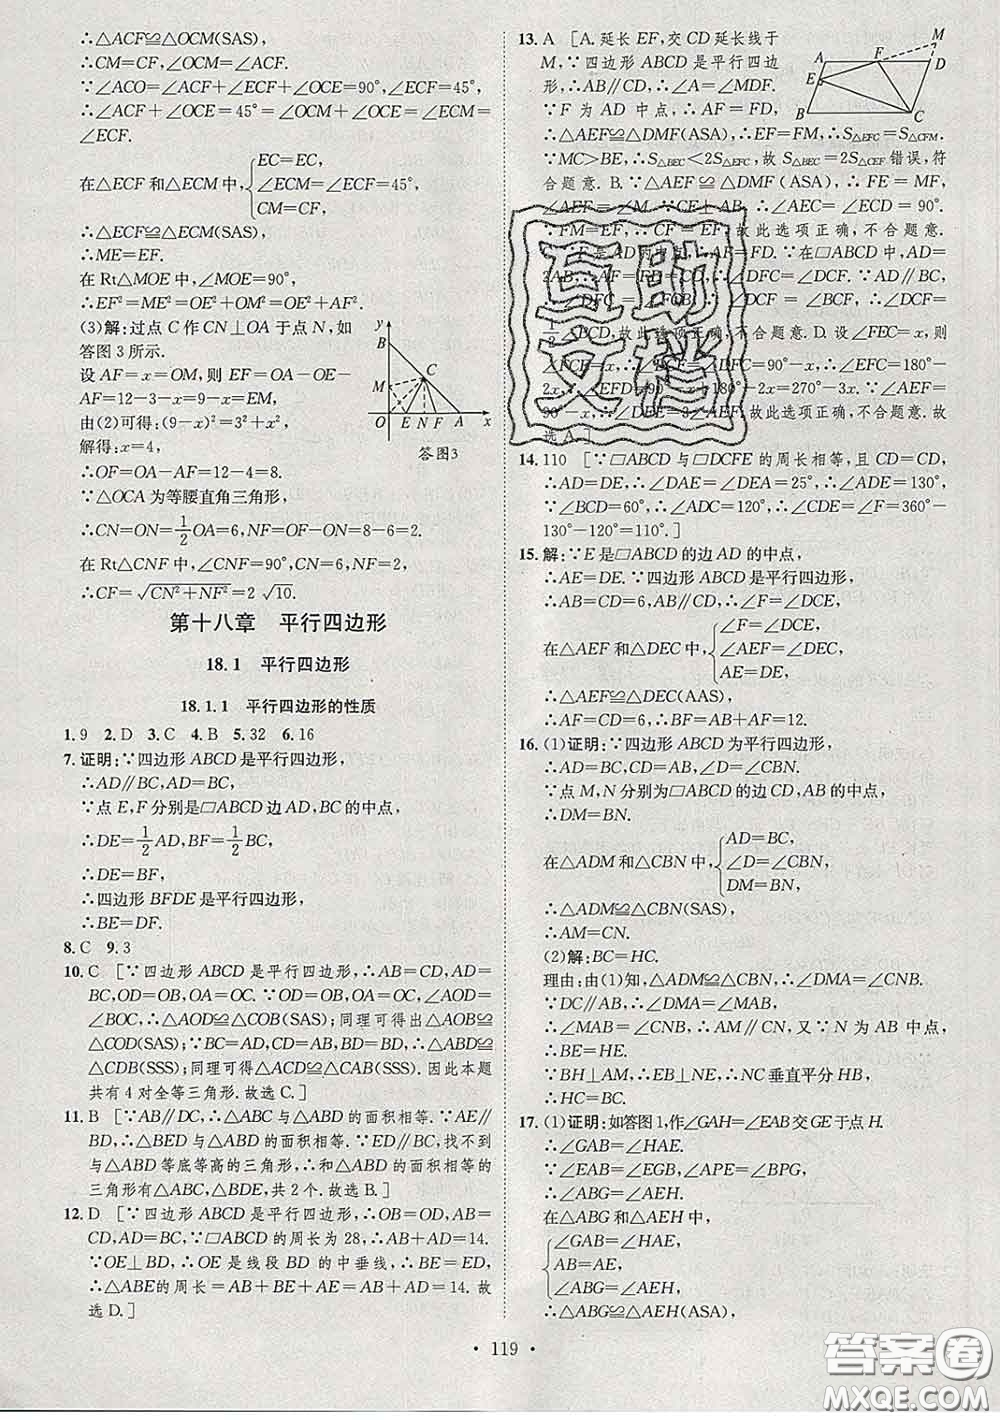 ∴△ACF≌△OCM(SAS),
∴CM=CF,∠OCM=∠ACF.
∵∠ACO=∠ACF+∠ECF+∠OCE=90°,∠ECF=45°,
∴∠ACF+∠OCE=45°=∠OCM+∠OCE=∠ECM=
∠ECF.
在△ECF和△ECM中,
EC=EC,
∠ECM=∠ECF=45°,
CM=CF,
∴△ECF≌△ECM(SAS),
∴ME=EF.
在Rt△MOE中,∠MOE=90°,
∴EF²=ME²=OE²+OM²=OE²+AF².
(3)解:过点C作CN⊥OA于点N,如
答图3所示.
设AF=x=OM,则EF=OA-OE-
AF=12-3-x=9-x=EM,
由(2)可得:(9-x)²=3²+x²,
解得:x=4,
∴OF=OA-AF=12-4=8.
y
B
C
M
O E N F A x
答图3
∵△OCA为等腰直角三角形,
∴CN=ON=1/2OA=6,NF=OF-ON=8-6=2.
在Rt△CNF中,∠CNF=90°,CN=6,NF=2,
∴CF=√(CN²+NF²)=2√10.
第十八章 平行四边形
18.1 平行四边形
18.1.1 平行四边形的性质
1.9 2.D 3.C 4.B 5.32 6.16
7.证明:∵四边形ABCD是平行四边形,
∴AD∥BC,AD=BC,
∵点E,F分别是□ABCD边AD,BC的中点,
∴DE=1/2AD,BF=1/2BC,
∴DE=BF,
∴四边形BFDE是平行四边形,
∴BE=DF.
8.C 9.3
10.C [∵四边形ABCD是平行四边形,∴AB=CD,AD=
BC,OD=OB,OA=OC.∵OD=OB,OA=OC,∠AOD=
∠BOC,∴△AOD≌△COB(SAS);同理可得出△AOB≌
△COD(SAS);∵BC=AD,CD=AB,BD=BD,∴△ABD≌
△CDB(SSS);同理可得△ACD≌△CAB(SSS).因此本题
共有4对全等三角形.故选C.]
11.B [∵AB∥DC,∴△ABC与△ABD的面积相等.∵AE∥
BD,∴△BED与△ABD的面积相等.∵ED∥BC,找不到
与△ABD等底等高的三角形,∴和△ABD的面积相等的
三角形有△ABC,△BDE,共2个.故选B.]
12.D [∵四边形ABCD是平行四边形,∴OB=OD,AB=
CD,AD=BC,∵□ABCD的周长为28,∴AB+AD=14.
∵OE⊥BD,∴OE是线段BD的中垂线,∴BE=ED,
∴△ABE的周长=AB+BE+AE=AB+AD=14.故
选D.]
13.A [A.延长EF,交CD延长线于
M,∵四边形ABCD是平行四边
形,∴AB∥CD,∴∠A=∠MDF.
∵F为AD中点,∴AF=FD,
A F D M
E
B C
∴△AEF≌△DMF(ASA),∴EF=FM,∴S△EFC=S△CFM.
∵MC>BE,∴S△BEC<2S△EFC,故S△BEC=2S△CEF错误,符
合题意.B.∵△AEF≌△DMF(ASA),∴FE=MF,
∠AEF=∠M.∵CE⊥AB,∴∠AEC=∠ECD=90°.
∵FM=EF,∴CF=EF.故此选项正确,不合题意.
AF=FD.∵在□ABCD中,AD=
∴∠DFC=∠DCF.∵AD∥BC,
∠DCF=∠BCF,∴∠DCF=
1/2∠BCD,故此选项正确,不合题意.D.设∠FEC=x,则
∠FCE=x,∴∠EFC=180°-
2x,∴∠EFD=90°-x+180°-2x=270°-3x.∵∠AEF=
90°-x,故此选项正确,不合题意.故
选A.]
14.110 [∵□ABCD与□DCFE的周长相等,且CD=CD,
∴AD=DE,∴∠DAE=∠DEA=25°,∴∠ADE=130°,
∵∠BCD=60°,∴∠ADC=120°,∴∠CDE=∠F=360°-
130°-120°=110°.]
15.解:∵E是□ABCD的边AD的中点,
∴AE=DE.∵四边形ABCD是平行四边形,
∴AB=CD=6,AB∥CD,∴∠F=∠DCE,
在△AEF和△DEC中,
∠F=∠DCE,
∠AEF=∠DEC,
AE=DE,
∴△AEF≌△DEC(AAS),
∴AF=CD=6,∴BF=AB+AF=12.
16.(1)证明:∵四边形ABCD为平行四边形,
∴AD=BC,CD=AB,∠D=∠CBN.
∵点M,N分别为□ABCD的边CD,AB的中点,
∴DM=BN.
在△ADM和△CBN中,
AD=BC,
∠D=∠CBN,
DM=BN,
∴△ADM≌△CBN(SAS),
∴AM=CN.
(2)解:BC=HC.
理由:由(1)知,△ADM≌△CBN,∴∠DMA=∠CNB.
∵DC∥AB,∴∠DMA=∠MAB,
∴∠MAB=∠CNB,∴AM∥CN,又∵N为AB中点,
∴BE=HE.
∵BH⊥AM,EB⊥EN,∴NC垂直平分HB,
∴HC=BC.
17.(1)证明:如答图1,作∠GAH=∠EAB交GE于点H.
∴∠GAB=∠HAE.
∵∠EAB=∠EGB,∠APE=∠BPG,
∴∠ABG=∠AEH.
在△ABG和△AEH中,
∠GAB=∠HAE,
AB=AE,
∠ABG=∠AEH,
∴△ABG≌△AEH(ASA),
119
互助文档
答案圈
MXQE.COM